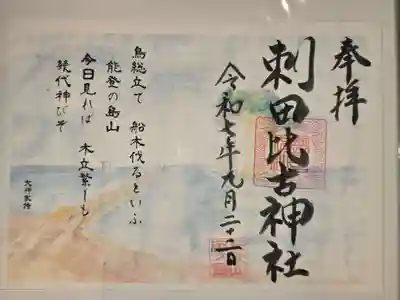 奉拝
刺田比古神社
令和七年九月二十二日
鳥総立て 船木伐るといふ
能登の島山
今日見れば 木立繁しも
幾代神びそ
大伴家持